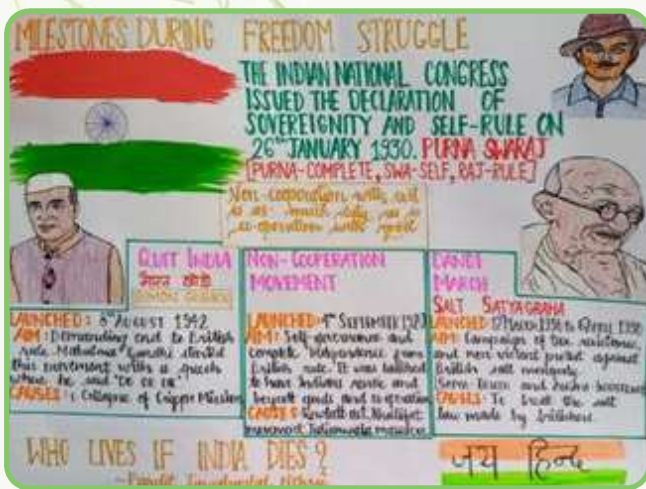 MILESTONES DURING FREEDOM STRUGGLE
THE INDIAN NATIONAL CONGRESS
ISSUED THE DECLARATION OF
SOVEREIGNITY AND SELF-RULE ON
26TH JANUARY 1930. PURNA SWARAJ
[PURNA-COMPLETE, SWA-SELF, RAJ-RULE]
Non-cooperation with evil
is as much duty as is
co-operation with good
QUIT INDIA
भारत छोड़ो
LAUNCHED: 8TH AUGUST 1942
AIM: Demanding end to British
rule. Mahatma Gandhi started
this movement with a speech
where he said "DO OR DIE"
CAUSES: Collapse of Cripps Mission
NON-COOPERATION
MOVEMENT
LAUNCHED: SEPTEMBER
AIM: Self-governance and
complete independence from
British rule. It was
to have Indians and
boycott goods and
CAUSES: Rowlatt act, Khilafat
movement, massacre
DANDI
MARCH
SALT SATYAGRAHA
LAUNCHED: 12 March to 6 April
AIM: Campaign of tax resistance
and non violent protest against
British salt monopoly
CAUSES: To break the salt
law made by
WHO LIVES IF INDIA DIES?
~Pandit Jawaharlal Nehru
जय हिन्द